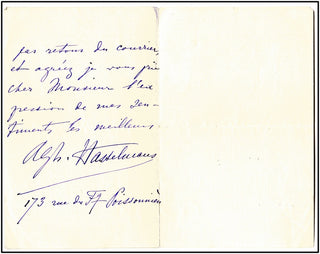 par retour du courrier,
et agréez je vous prie
cher Monsieur l'ex
pression de mes sen-
timents les meilleurs.
Alph. Hasselmans
173 rue du Fg Poissonnière